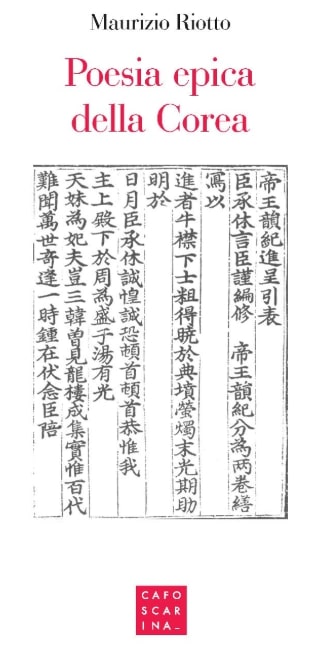 Maurizio Riotto
Poesia epica
della Corea
帝王韻紀進呈引表
臣承休言臣謹編修　帝王韻紀分為兩卷繕
寫以
進者牛襟下士粗得曉於典墳螢燭末光期助
明於
日月臣承休誠惶誠恐頓首頓首恭惟我
主上殿下於周為盛于湯有光
天妹為妃夫豈三韓曾見龍樓成集實惟百代
難聞萬世奇逢一時鍾在伏念臣陪
CAFO
SCAR
INA_